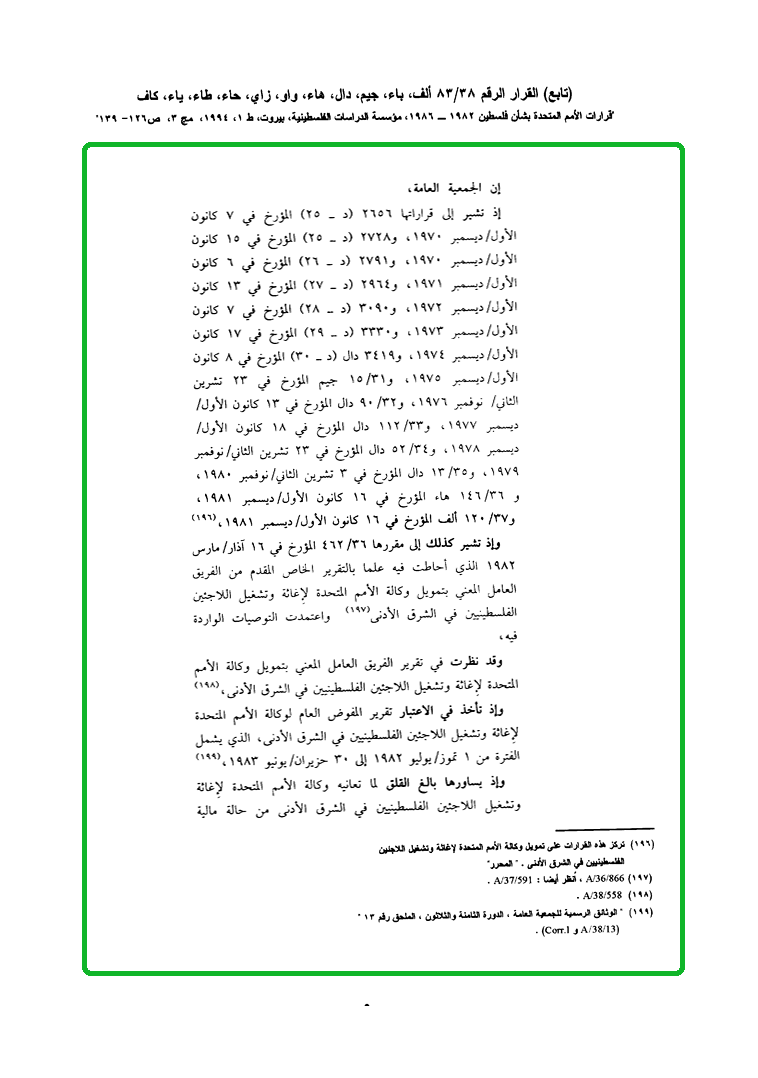 (تابع) القرار الرقم ٨٣/٣٨ ألف، باء، جيم، دال، هاء، واو، زاي، حاء، طاء، ياء، كاف
"قرارات الأمم المتحدة بشأن فلسطين ١٩٨٢ – ١٩٨٦، مؤسسة الدراسات الفلسطينية، بيروت، ط ١، ١٩٩٤، مج ٣، ص١٢٦- ١٣٩"
إن الجمعية العامة،
إذ تشير إلى قراراتها ٢٦٥٦ (د ـ ٢٥) المؤرخ في ٧ كانون
الأول/ديسمبر ١٩٧٠، و٢٧٢٨ (د ـ ٢٥) المؤرخ في ١٥ كانون
الأول/ديسمبر ١٩٧٠، و٢٧٩١ (د ـ ٢٦) المؤرخ في ٦ كانون
الأول/ديسمبر ١٩٧١، و٢٩٦٤ (د ـ ٢٧) المؤرخ في ١٣ كانون
الأول/ديسمبر ١٩٧٢، و٣٠٩٠ (د ـ ٢٨) المؤرخ في ٧ كانون
الأول/ديسمبر ١٩٧٣، و٣٣٣٠ (د ـ ٢٩) المؤرخ في ١٧ كانون
الأول/ديسمبر ١٩٧٤، و٣٤١٩ دال (د ـ ٣٠) المؤرخ في ٨ كانون
الأول/ديسمبر ١٩٧٥، و١٥/٣١ جيم المؤرخ في ٢٣ تشرين
الثاني/ نوفمبر ١٩٧٦، و٩٠/٣٢ دال المؤرخ في ١٣ كانون الأول/
ديسمبر ١٩٧٧، و١١٢/٣٣ دال المؤرخ في ١٨ كانون الأول/
ديسمبر ١٩٧٨، و٥٢/٣٤ دال المؤرخ في ٢٣ تشرين الثاني/نوفمبر
١٩٧٩، و١٣/٣٥ دال المؤرخ في ٣ تشرين الثاني/نوفمبر ١٩٨٠،
و ١٤٦/٣٦ هاء المؤرخ في ١٦ كانون الأول/ديسمبر ١٩٨١،
و١٢٠/٣٧ ألف المؤرخ في ١٦ كانون الأول/ديسمبر ١٩٨١،(١٩٦)
وإذ تشير كذلك إلى مقررها ٤٦٢/٣٦ المؤرخ في ١٦ آذار/مارس
١٩٨٢ الذي أحاطت فيه علما بالتقرير الخاص المقدم من الفريق
العامل المعني بتمويل وكالة الأمم المتحدة لإغاثة وتشغيل اللاجئين
الفلسطينيين في الشرق الأدنى(١٩٧) واعتمدت التوصيات الواردة
فيه،
وقد نظرت في تقرير الفريق العامل المعني بتمويل وكالة الأمم
المتحدة لإغاثة وتشغيل اللاجئين الفلسطينيين في الشرق الأدنى،(١٩٨)
وإذ تأخذ في الاعتبار تقرير المفوض العام لوكالة الأمم المتحدة
لإغاثة وتشغيل اللاجئين الفلسطينيين في الشرق الأدنى، الذي يشمل
الفترة من ١ تموز/يوليو ١٩٨٢ إلى ٣٠ حزيران/يونيو ١٩٨٣،(١٩٩)
وإذ يساورها بالغ القلق لما تعانيه وكالة الأمم المتحدة لإغاثة
وتشغيل اللاجئين الفلسطينيين في الشرق الأدنى من حالة مالية
(١٩٦) تركز هذه القرارات على تمويل وكالة الأمم المتحدة لإغاثة وتشغيل اللاجئين
الفلسطينيين في الشرق الأدنى . "المحرر"
(١٩٧) A/36/866 ، أنظر أيضا : A/37/591 .
(١٩٨) A/38/558 .
(١٩٩) "الوثائق الرسمية للجمعية العامة ، الدورة الثامنة والثلاثون ، الملحق رقم ١٣"
(A/38/13 و Corr.1) .